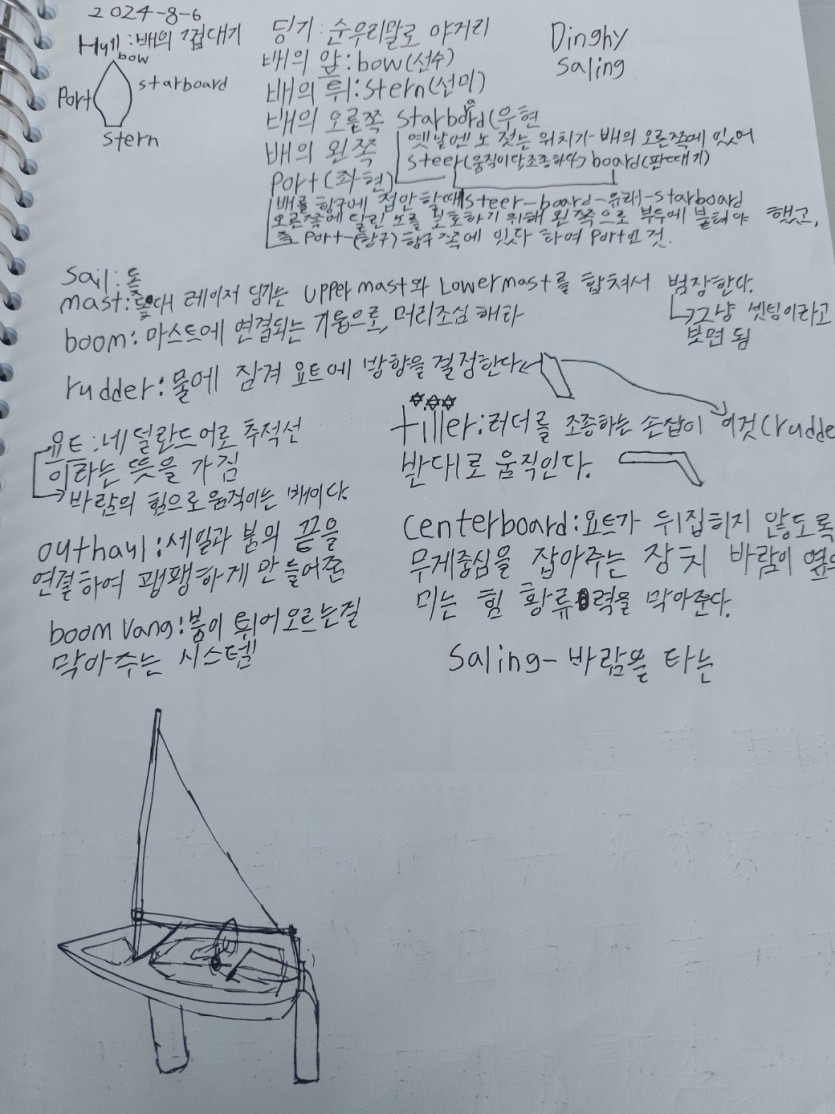 2024-8-6
Hull:배의 껍대기
bow
Port
starboard
stern
딩기: 순우리말로 야거리
배의 앞:bow(선수)
배의 뒤:stern(선미)
배의 오른쪽 starboard(우현
배의 왼쪽
Port(좌현)
Dinghy
Saling
옛날엔 노 젓는 위치가 배의 오른쪽에 있어
steer(움직이다,조종하다) board(판때기)
steer-board-유래-starboard
배를 항구에 접안할때
오른쪽에 달린 노를 보호하기 위해 왼쪽으로 부두에 붙여야 했고,
즉 Port-(항구) 항구쪽에 있다 하여 Port인 것.
Sail: 돛
mast:돛대 레이저 딩기는 Upper mast와 Lower mast를 합쳐서 범장한다.
그냥 셋팅이라고
보면 됨
boom: 마스트에 연결되는 기둥으로, 머리조심 해라
rudder:물에 잠겨 요트에 방향을 결정한다
요트:네덜란드어로 추적선
이라는 뜻을 가짐
바람의 힘으로 움직이는 배이다.
tiller:러더를 조종하는 손잡이 이것(rudder
반대로 움직인다.
outhaul:세일과 붐의 끝을
연결하여 팽팽하게 만들어준
boom vang:붐이 튀어오르는걸
막아주는 시스템
centerboard:요트가 뒤집히지 않도록
무게중심을 잡아주는 장치 바람이 옆으
미는 힘 황류력을 막아준다.
Saling-바람을 타는